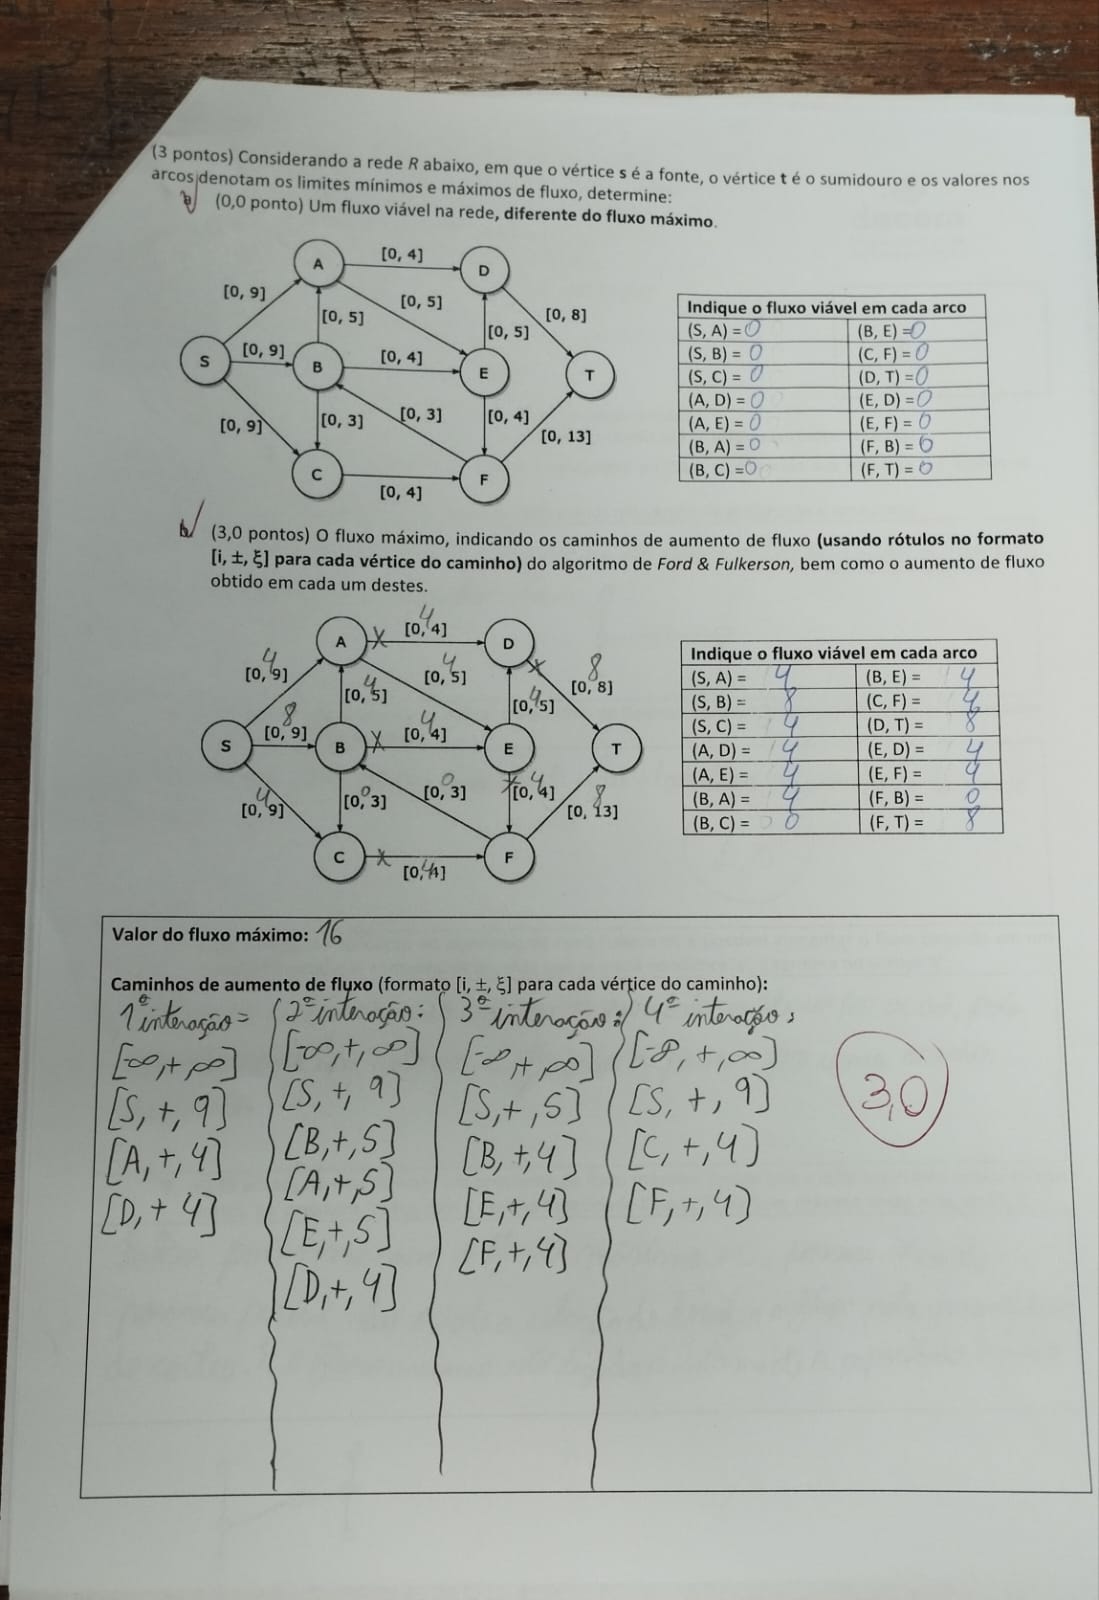 (3 pontos) Considerando a rede R abaixo, em que o vértice s é a fonte, o vértice t é o sumidouro e os valores nos
arcos denotam os limites mínimos e máximos de fluxo, determine:
a) (0,0 ponto) Um fluxo viável na rede, diferente do fluxo máximo.
A [0, 4] D
[0, 9] [0, 5] [0, 5] [0, 5] [0, 8]
S [0, 9] B [0, 4] E T
[0, 9] [0, 3] [0, 3] [0, 4] [0, 13]
C [0, 4] F
Indique o fluxo viável em cada arco
(S, A) = 0 (B, E) = 0
(S, B) = 0 (C, F) = 0
(S, C) = 0 (D, T) = 0
(A, D) = 0 (E, D) = 0
(A, E) = 0 (E, F) = 0
(B, A) = 0 (F, B) = 0
(B, C) = 0 (F, T) = 0
b) (3,0 pontos) O fluxo máximo, indicando os caminhos de aumento de fluxo (usando rótulos no formato
[i, ±, ξ] para cada vértice do caminho) do algoritmo de Ford & Fulkerson, bem como o aumento de fluxo
obtido em cada um destes.
A x 4 [0, 4] D
4 [0, 9] 4 [0, 5] 4 [0, 5] 4 [0, 5] x 8 [0, 8]
S 8 [0, 9] B x 4 [0, 4] E T
4 [0, 9] 0 [0, 3] 0 [0, 3] x 4 [0, 4] 8 [0, 13]
C x 4 [0, 4] F
Indique o fluxo viável em cada arco
(S, A) = 4 (B, E) = 4
(S, B) = 8 (C, F) = 4
(S, C) = 4 (D, T) = 8
(A, D) = 4 (E, D) = 4
(A, E) = 4 (E, F) = 4
(B, A) = 4 (F, B) = 0
(B, C) = 0 (F, T) = 8
Valor do fluxo máximo: 16
Caminhos de aumento de fluxo (formato [i, ±, ξ] para cada vértice do caminho):
1ª interação =
[-∞, + ∞]
[S, +, 9]
[A, +, 4]
[D, + 4]
2ª interação:
[-∞, +, ∞]
[S, +, 9]
[B, +, 5]
[A, +, 5]
[E, +, 5]
[D, +, 4]
3ª interação:
[-∞, + ∞]
[S, +, 5]
[B, +, 4]
[E, +, 4]
[F, +, 4]
4ª interação:
[-∞, +, ∞]
[S, +, 9]
[C, +, 4]
[F, +, 4]
3,0